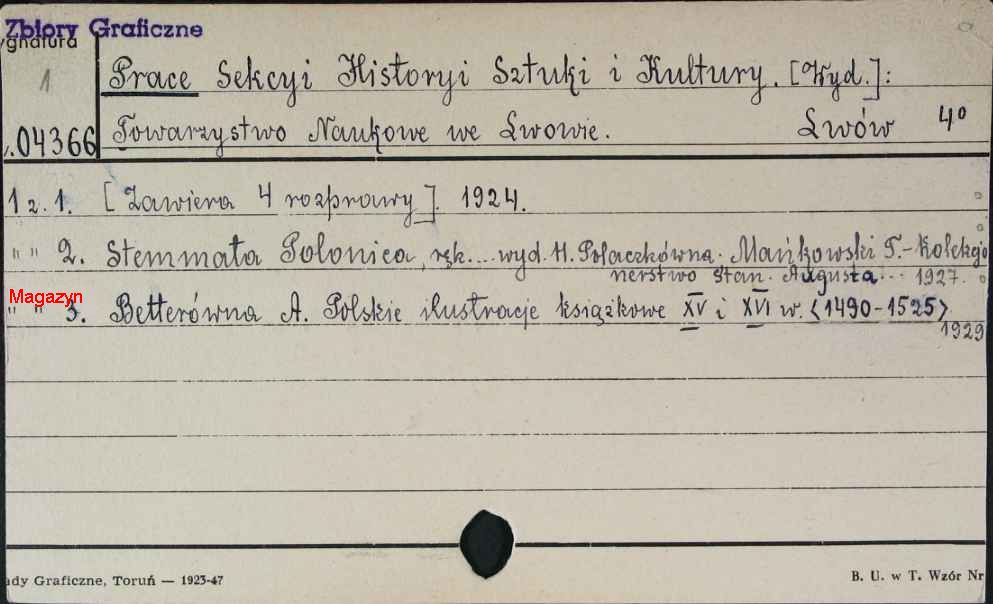 Zbiory Graficzne
ygnatura
1
Prace Sekcyi Historyi Sztuki i Kultury. [Wyd.]:
04366 Towarzystwo Naukowe we Lwowie. Lwów 4°
1 z. 1. [Zawiera 4 rozprawy]. 1924.
" " 2. Stemmata Polonica, ręk.... wyd. H. Polaczkówna. Mańkowski T.-Kolekcjo
nerstwo Stan. Augusta... 1927.
Magazyn
" " 3. Betterówna A. Polskie ilustracje książkowe XV i XVI w. <1490-1525>
1929
ady Graficzne, Toruń — 1923-47 B. U. w T. Wzór Nr